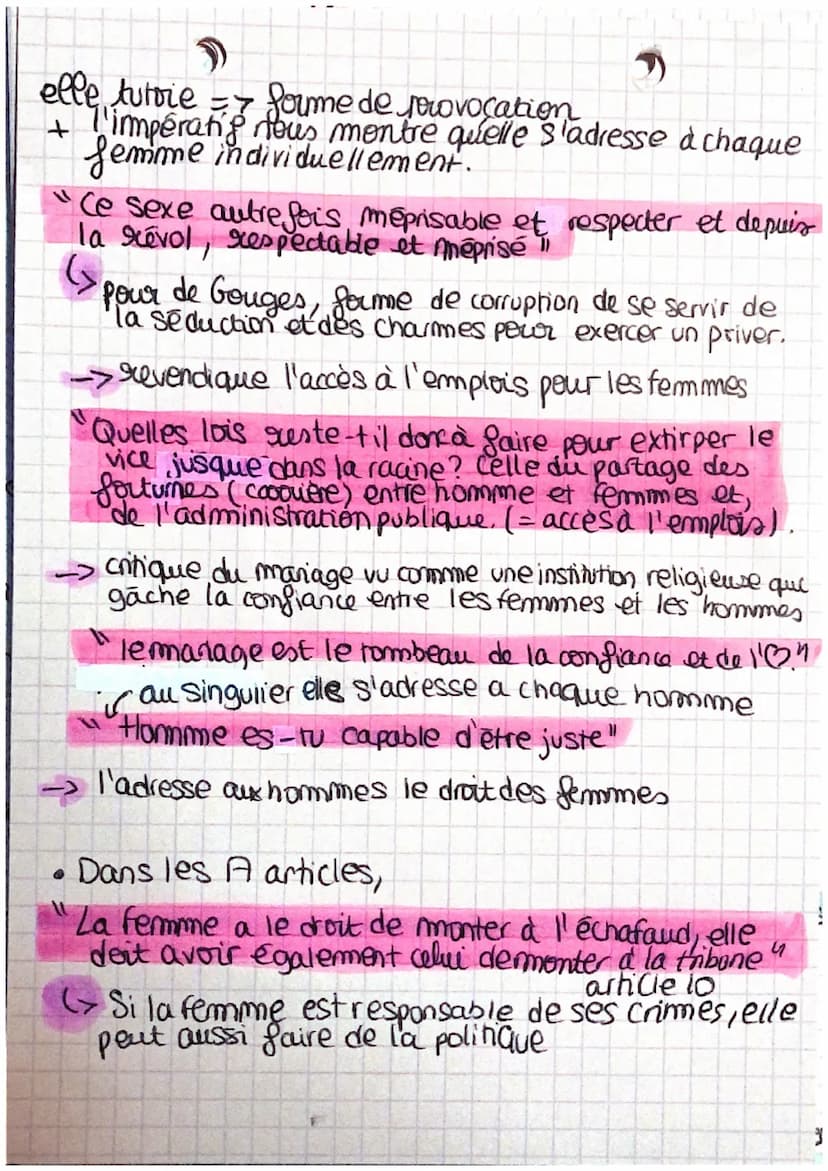 elle tutoie => forme de provocation
+ l'impératif nous montre qu'elle s'adresse à chaque
femme individuellement.
"Ce sexe autrefois méprisable et respecter et depuis
la révol, respectable et méprisé"
↳ pour de Gouges, forme de corruption de se servir de
la séduction et des charmes pour exercer un priver.
-> revendique l'accès à l'emplois pour les femmes
"Quelles lois reste-t-il donc à faire pour extirper le
vice jusque dans la racine? Celle du partage des
fortunes () entre homme et femmes et,
de l'administration publique. (= accès à l'emplois).
-> critique du mariage vu comme une institution religieuse que
gâche la confiance entre les femmes et les hommes
"le mariage est le tombeau de la confiance et de l'♡"
au singulier elle s'adresse a chaque homme
"Homme es-tu capable d'être juste"
-> l'adresse aux hommes le droit des femmes
• Dans les A articles,
"La femme a le droit de monter à l'échafaud, elle
doit avoir également celui de monter à la tribune"
article 10
↳ Si la femme est responsable de ses crimes, elle
peut aussi faire de la politique